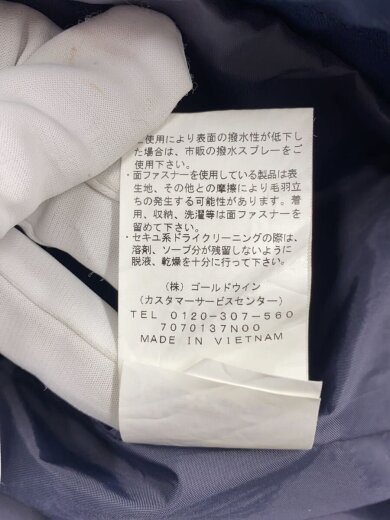 使用により表面の撥水性が低下し
た場合は、市販の撥水スプレーをご
使用下さい。
・面ファスナーを使用している製品は表
生地、その他との摩擦により毛羽立
ちの発生する可能性があります。着
用、収納、洗濯等は面ファスナーを
留めて下さい。
・セキユ系ドライクリーニングの際は、
溶剤、ソープ分が残留しないように
脱液、乾燥を十分に行って下さい。
(株) ゴールドウイン
(カスタマーサービスセンター)
TEL 0120-307-560
7070137N00
MADE IN VIETNAM